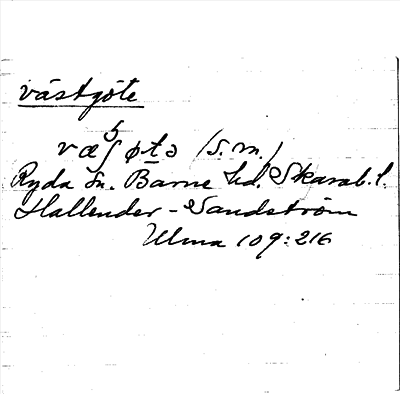 västgöte
væ⁵ʃøtə (s. m.)
Ryda sn. Barne hd. Skarab. l.
Hallender-Sandström
Ulma 109:216